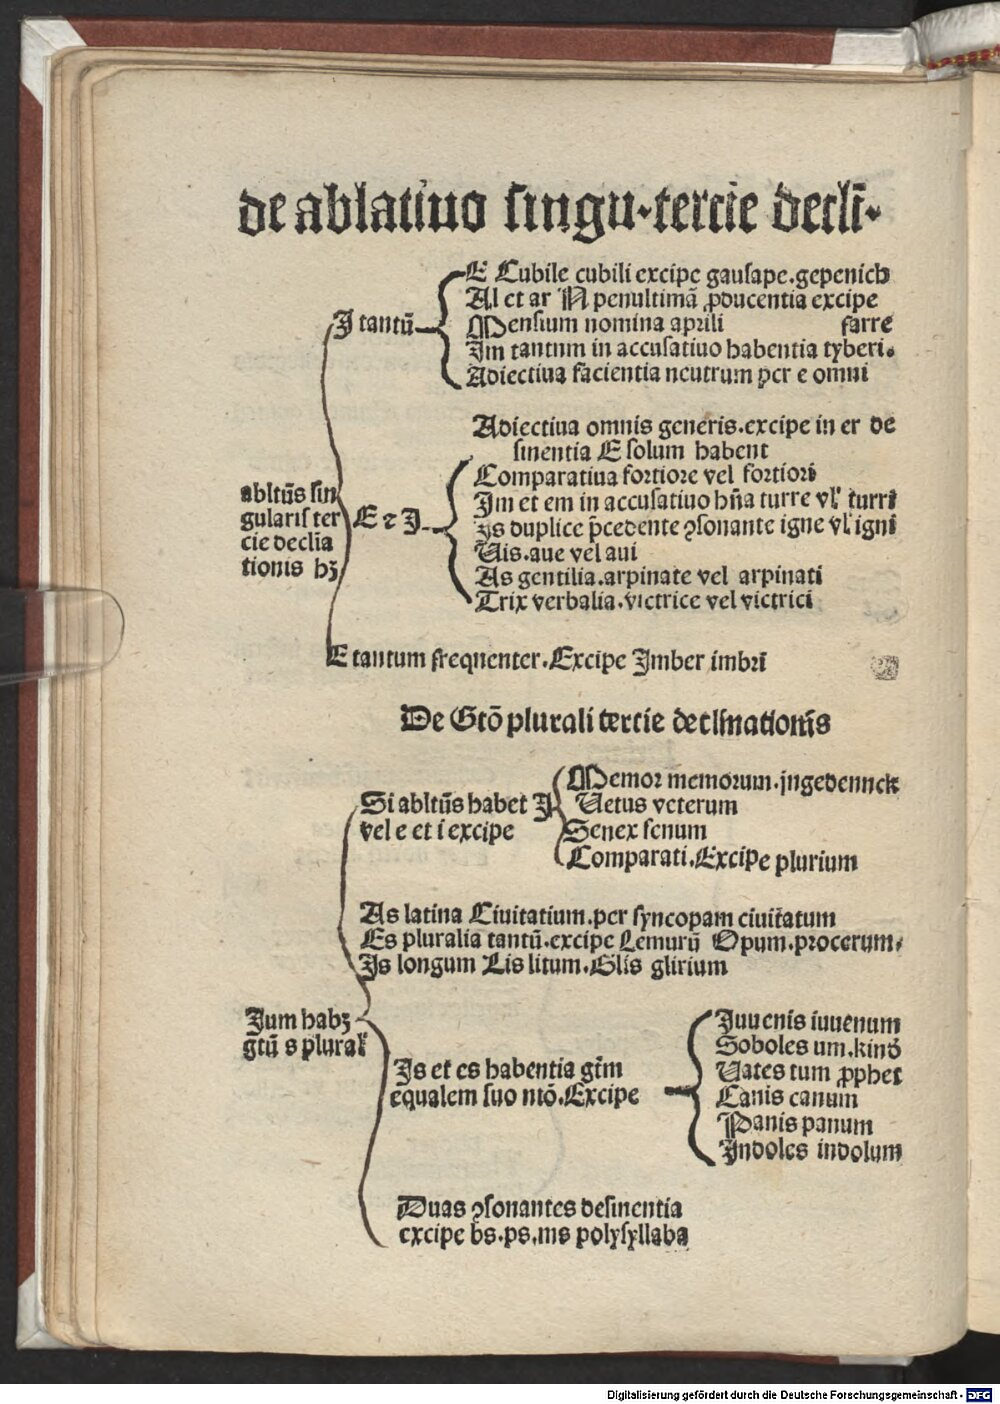 de ablatiuo singu·tercie decli̅·
E Cubile cubili excipe gausape.gepenich
Al et ar N penultimā ꝓducentia excipe
J tantū
Mensium nomina aprili farre
Im tantum in accusatiuo habentia tyberi.
Adiectiua facientia neutrum per e omni
Adiectiua omnis generis.excipe in er de
sinentia E solum habent
Comparatiua fortiore vel fortiori
abltūs sin
gularis ter
cie declīa
tionis hꝫ
E ⁊ J
Im et em in accusatiuo hn̄a turre vl' turri
Is duplice p̄cedente ꝯsonante igne vl' igni
Uis.aue vel aui
As gentilia.arpinate vel arpinati
Trix verbalia.victrice vel victrici
E tantum frequenter.Excipe Imber imbri
De Gtō plurali tercie declinationis
Si abltūs habet J
vel e et i excipe
Memor memorum.jngedennck
Uetus veterum
Senex senum
Comparati.Excipe plurium
As latina Ciuitatium.per syncopam ciuitatum
Es pluralia tantū.excipe Lemurū Opum.procerum.
Is longum Lis litum.Glis glirium
Jum habꝫ
gtū s plural'
Is et es habentia gtm̄
equalem suo ntō.Excipe
Juuenis iuuenum
Soboles um.kind
Uates tum ꝓphet
Canis canum
Panis panum
Indoles indolum
Duas ꝯsonantes desinentia
excipe bs.ps.ms polysyllaba
Digitalisierung gefördert durch die Deutsche Forschungsgemeinschaft - DFG